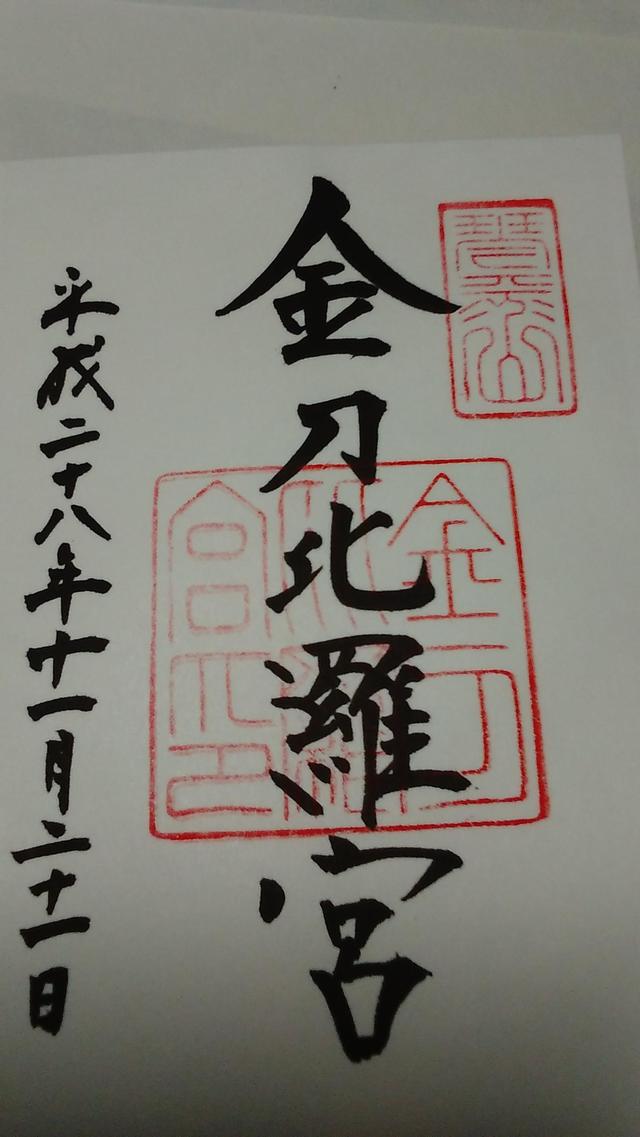 琴平山
金刀比羅宮
金刀
比羅
宮之印
平成二十八年十一月二十一日